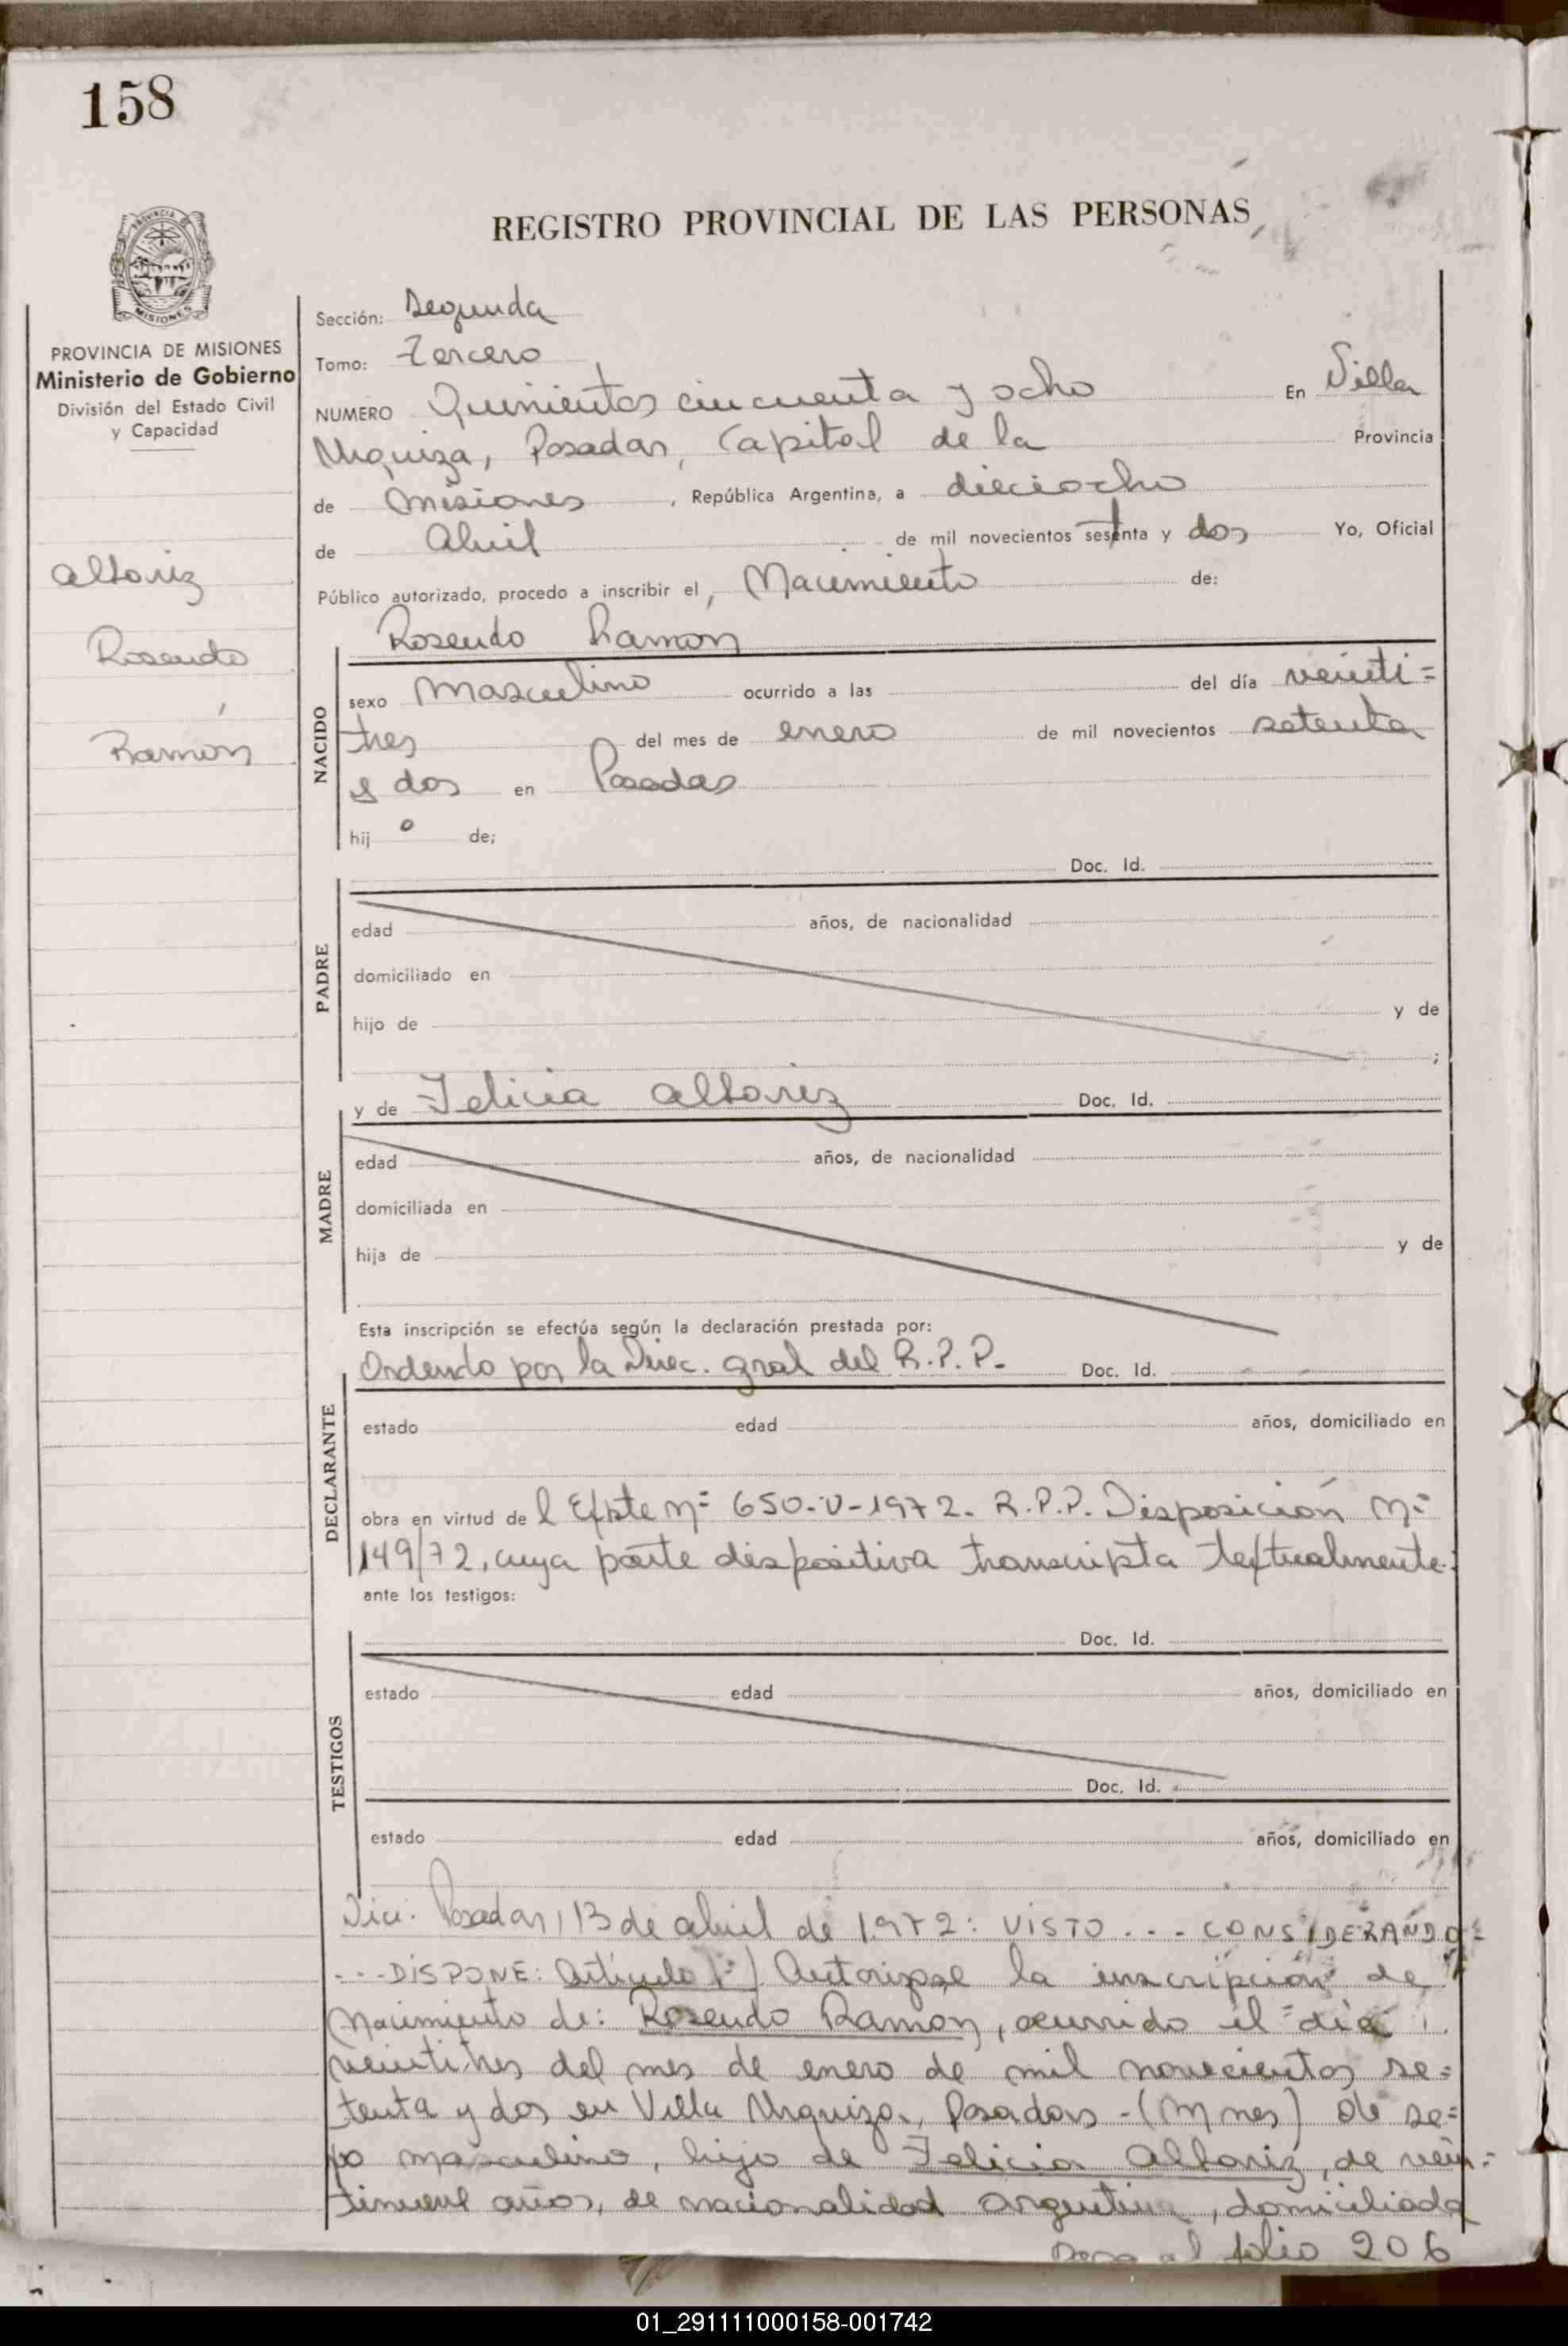 158
REGISTRO PROVINCIAL DE LAS PERSONAS
PROVINCIA DE
MISIONES
PROVINCIA DE MISIONES
Ministerio de Gobierno
División del Estado Civil
y Capacidad
Altariz
Rosendo
Ramón
Sección: Segunda
Tomo: Tercero
NUMERO Quinientos cincuenta y ocho En Villa
Urquiza, Posadas, Capital de la Provincia
de Misiones, República Argentina, a dieciocho
de Abril de mil novecientos setenta y dos Yo, Oficial
Público autorizado, procedo a inscribir el, Nacimiento de:
Rosendo Ramon
NACIDO
sexo Masculino ocurrido a las del día veinti=
tres del mes de enero de mil novecientos setenta
y dos en Posadas
hij o de;
Doc. Id.
PADRE
edad años, de nacionalidad
domiciliado en
hijo de y de
;
y de Felicia Altariz Doc. Id.
MADRE
edad años, de nacionalidad
domiciliada en
hija de y de
Esta inscripción se efectúa según la declaración prestada por:
Ordendo por la Direc. gral del R.P.P. Doc. Id.
DECLARANTE
estado edad años, domiciliado en
obra en virtud de l Expte Nº 650-V-1972. R.P.P. Disposición Nº
149/72, cuya parte dispositiva transcripta textualmente:
ante los testigos:
Doc. Id.
TESTIGOS
estado edad años, domiciliado en
Doc. Id.
estado edad años, domiciliado en
Dice: Posadas, 13 de abril de 1.972: VISTO ... CONSIDERANDO=
...DISPONE: Artículo 1º) Autorizase la inscripción de
Nacimiento de: Rosendo Ramon, ocurrido el día
veintitres del mes de enero de mil novecientos se=
tenta y dos en Villa Urquiza, Posadas-(Mnes) de se=
xo masculino, hijo de Felicia Altariz, de vein=
tinueve años, de nacionalidad argentina, domiciliada
Pasa al folio 206
01_291111000158-001742